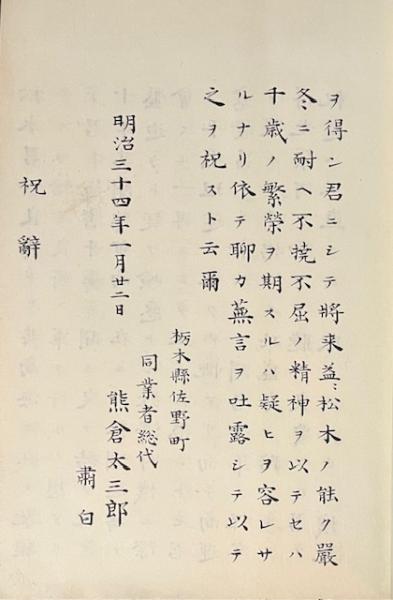 ヲ得ン君ニシテ將来益〻松木ノ能ク嚴
冬ニ耐ヘ不撓不屈ノ精神ヲ以テセハ
千歳ノ繁榮ヲ期スルハ疑ヒヲ容レサ
ルナリ依テ聊カ蕪言ヲ吐露シテ以テ
之ヲ祝スト云爾
明治三十四年一月廿二日
栃木縣佐野町
同業者総代
熊倉太三郎
肅白
祝辭